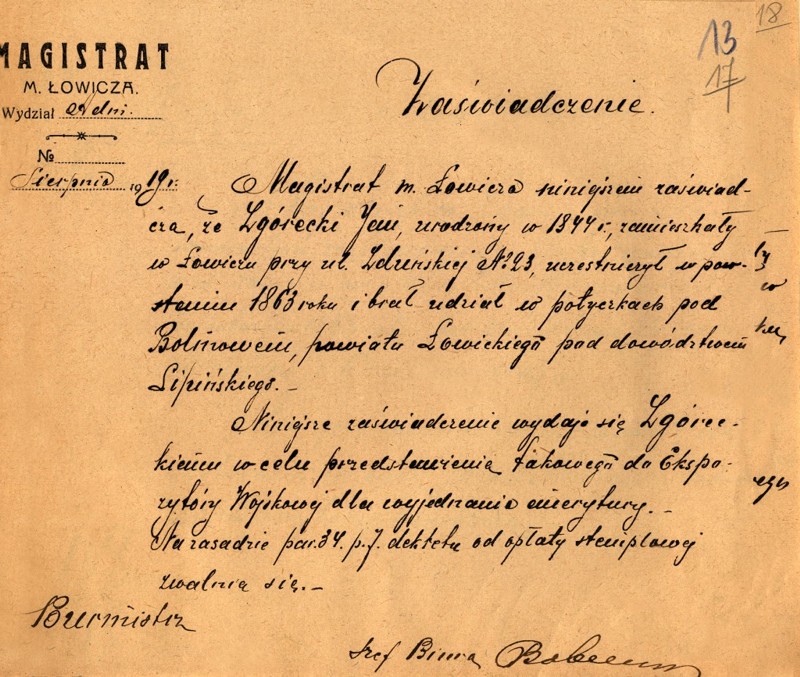 18
13
17
MAGISTRAT
M. ŁOWICZA.
Wydział
№
Sierpnia 1919 r.
Zaświadczenie.
Magistrat m. Łowicza niniejszem zaświad-
cza, że Zgórecki Jan, urodzony w 1844 r., zamieszkały
w Łowiczu przy ul. Zduńskiej № 23, uczestniczył w pow-
staniu 1863 roku i brał udział w potyczkach pod
Bolimowem, powiatu Łowickiego pod dowództwem
Lipińskiego. –
Niniejsze zaświadczenie wydaje się Zgórec-
kiemu w celu przedstawienia takowego do Ekspo-
zytóry Wojskowej dla wyjednania emerytury. –
Na zasadzie par. 34. p. 7. dekretu od opłaty stemplowej
zwalnia się. –
Burmistrz
Szef Biura